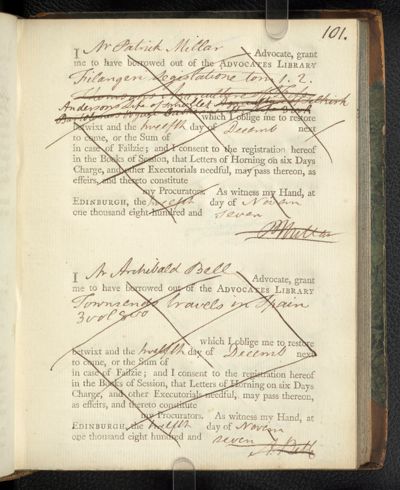 101.
I Mr Patrick Millar Advocate, grant
me to have borrowed out of the ADVOCATES LIBRARY
Filangeri Legislatione tom 1. 2.
Andersons Life of Smollet
which I oblige me to restore
betwixt and the twelfth day of Decemb next
to come, or the Sum of
in case of Failzie; and I consent to the registration hereof
in the Books of Session, that Letters of Horning on six Days
Charge, and other Executorials needful, may pass thereon, as
effeirs, and thereto constitute
my Procurators. As witness my Hand, at
EDINBURGH, the twelfth day of Novem
one thousand eight hundred and seven
P Millar
I Mr Archibald Bell Advocate, grant
me to have borrowed out of the ADVOCATES LIBRARY
Townsends travels in Spain
3 vol 8vo
which I oblige me to restore
betwixt and the twelfth day of Decemb next
to come, or the Sum of
in case of Failzie; and I consent to the registration hereof
in the Books of Session, that Letters of Horning on six Days
Charge, and other Executorials needful, may pass thereon,
as effeirs, and thereto constitute
my Procurators. As witness my Hand, at
EDINBURGH, the twelfth day of Novem
one thousand eight hundred and seven
A Bell